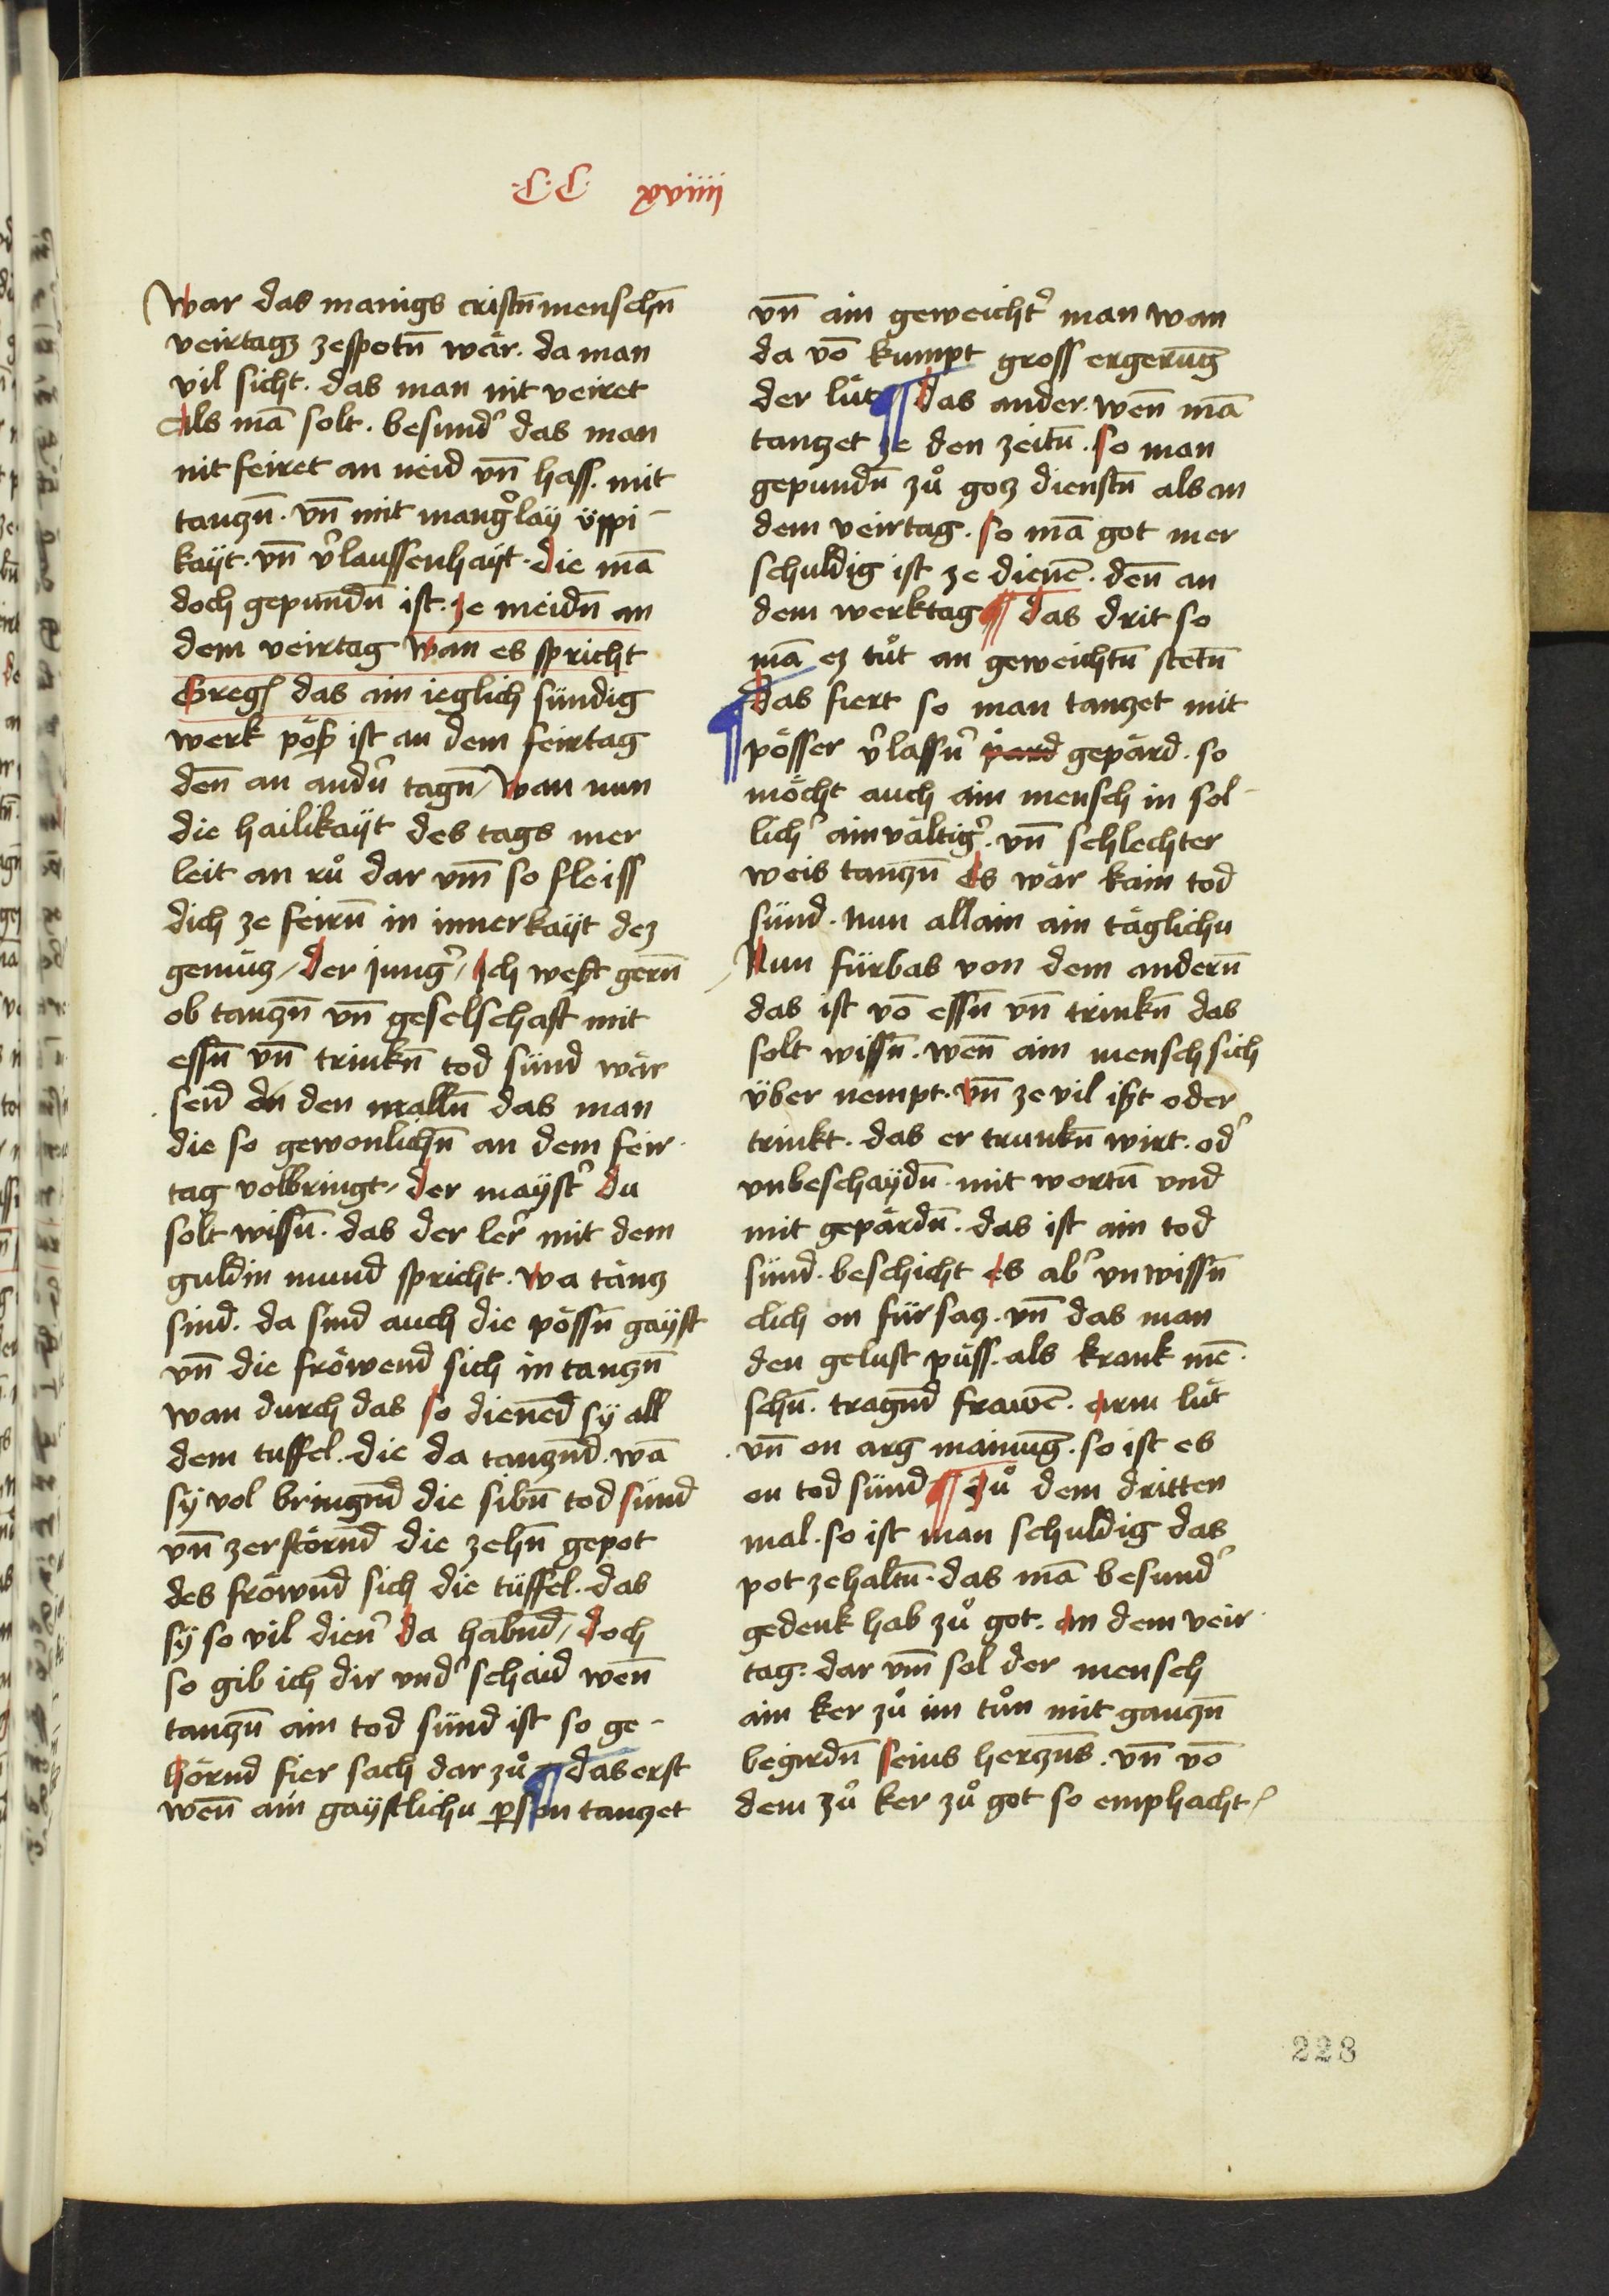 ·C·C· xviiij
War das manigs cristn̄ menschn̄
veirtagz ze spotn̄ wär. da man
vil sicht. das man nit veiret
Als mā solt. besundˀ das man
nit feiret an neid vn̄ hass. mit
tanzn̄. vn̄ mit mangˀlay üppi-
kayt. vn̄ vˀlaussenhayt. die mā
doch gepundn̄ ist. ze meidn̄ an
dem veirtag wan es spricht
Greg⁹ das ain ieglich sündig
werk pöß ist an dem feirtag
den̄ an andˀn tagn̄ / Wan nun
die hailikayt des tags mer
leit an ruͦ dar vm̄ so fleiss
dich ze feirn̄ in innerkayt dez
gemütz / Der jungˀ / Ich west gern̄
ob tanzn̄ vn̄ geselschaft mit
essn̄ vn̄ trinkn̄ tod sünd wär
seid den walln̄ das man
die so gewonlichn̄ an dem feir-
tag volbringt / der maystˀ Du
solt wissn̄. das der lerˀ mit dem
guldin mund spricht. Wa tänz
sind. da sind auch die pössn̄ gayst
vn̄ die fröwend sich in tanzn̄
wan durch das so dienēd sy all
dem tuffel. die da tanzn̄d. wā
sy vol bringn̄d die sibn̄ tod sünd
vn̄ zerstörn̄d die zehn̄ gepot
des fröwn̄d sich die tüffel. das
sy so vil dienˀ da habn̄d / doch
so gib ich dir vndˀschaid wen̄
tanzn̄ ain tod sünd ist so ge-
hörnd fier sach dar zuͦ ¶ das erst
wen̄ ain gaystlichu pˀson tanzet
vn̄ ain geweichtˀ man wan
da vō kumpt gross ergerūg
der lüt ¶ das ander. wen̄ mā
tanzet ze den zeitn̄. so man
gepundn̄ zuͦ gotz dienstn̄ als an
dem veirtag. so mā got mer
schuldig ist ze dienē. den̄ an
dem werktag ¶ das drit so
mā ez tuͦt an geweichtn̄ stetn̄
¶ das fiert so man tanzet mit
pösser vˀlassnˀ gepärd. so
möcht auch ain mensch in sol-
lichˀ ainvältigˀ. vn̄ schlechter
weis tanzn̄ es wär kain tod
sünd. nun allain ain täglichu
Nun fürbas von dem andern̄
das ist vō essn̄ vn̄ trinkn̄ das
solt wissn̄. wen̄ ain mensch sich
über nempt. vn̄ ze vil ißt oder
trinkt. das er trunkn̄ wirt. odˀ
vnbeschaydn̄. mit wortn̄ vnd
mit gepärdn̄. das ist ain tod
sünd. beschicht es abˀ vnwissn̄
clich on für satz. vn̄ das man
den gelust püss. als krank mē-
schn̄. tragn̄d frawē. arm lüt
vn̄ on arg mainūg. so ist es
on tod sünd ¶ Zuͦ dem dritten
mal. so ist man schuldig das
pot ze haltn̄. das mā besundˀ
gedenk hab zuͦ got. an dem veir-
tag. dar vm̄ sol der mensch
ain ker zuͦ im tuͦn mit ganzn̄
begirdn̄ seins herzn̄s. vn̄ vō
dem zuͦ ker zuͦ got so emphacht
228